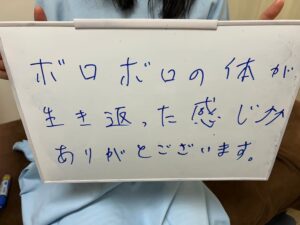 ボロボロの体が
生き返った感じ♪♪
ありがとございます。